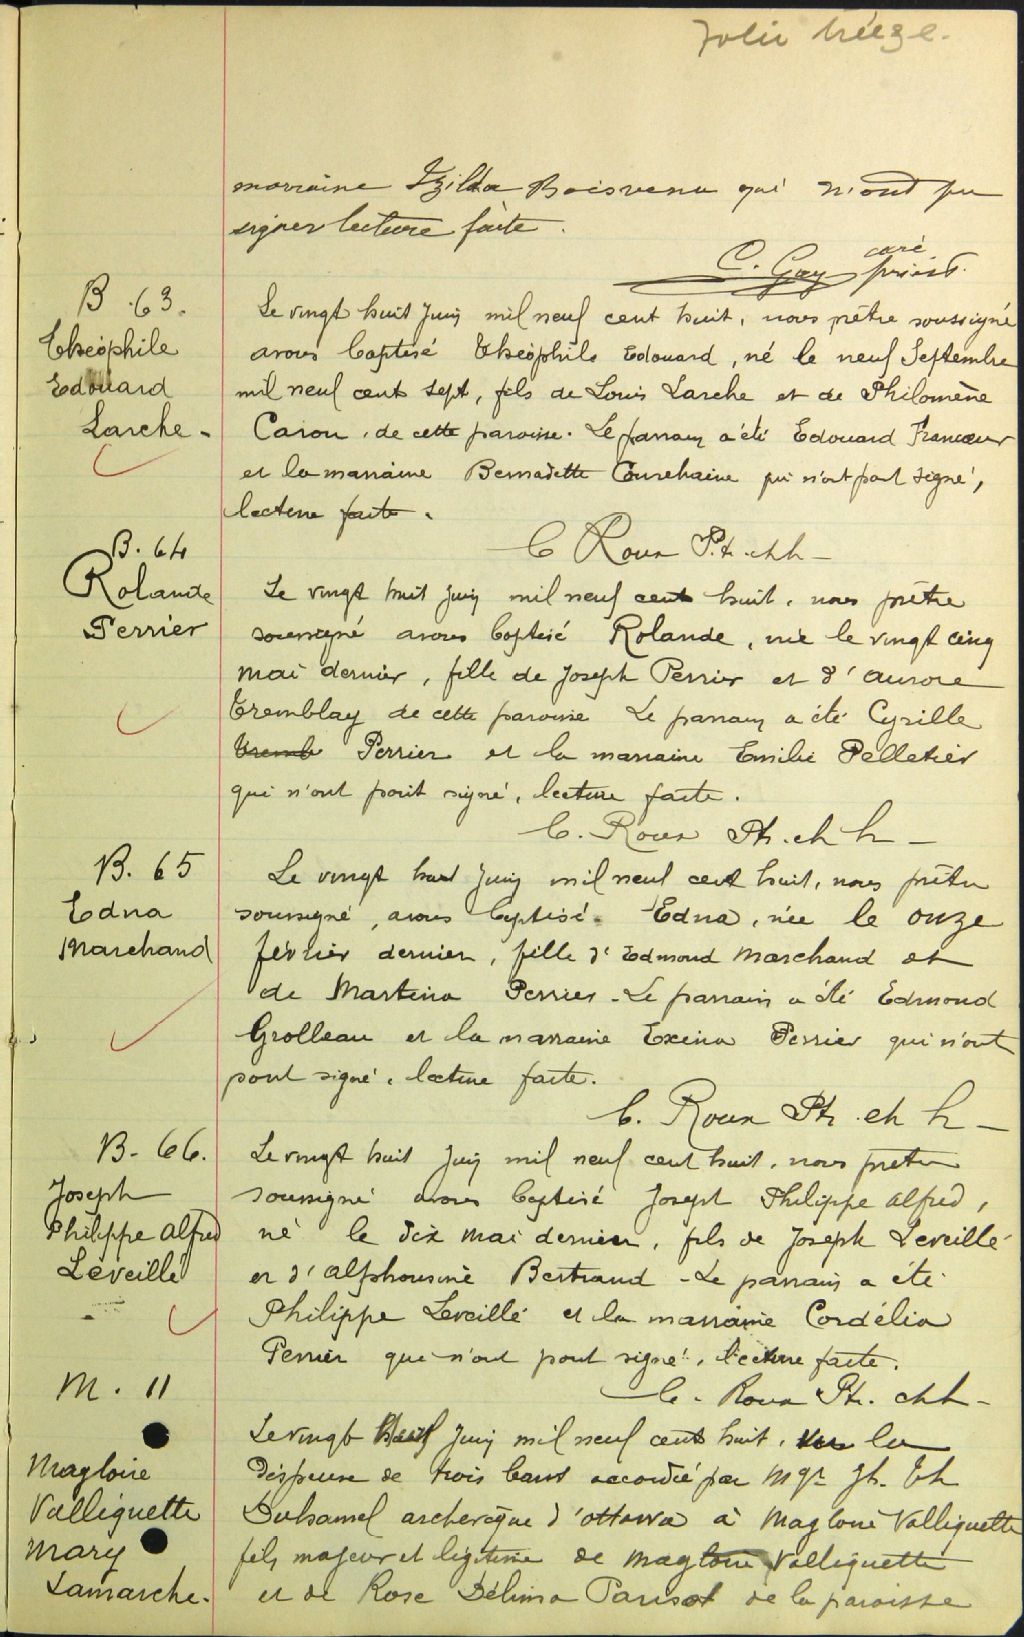 marraine Izilda Boisvenu qui n'ont pu
signer lecture faite.
C. Gay curé
B. 63.
Théophile
Edouard
Larche.
Le vingt huit Juin mil neuf cent huit, nous prêtre soussigné
avons baptisé Théophile Edouard, né le neuf Septembre
mil neuf cent sept, fils de Louis Larche et de Philomène
Caron, de cette paroisse. Le parrain a été Edouard Francoeur
et la marraine Bernadette qui n'ont point signé,
lecture faite.
C Roux Ptr. ch h -
B. 64
Rolande
Perrier
Le vingt huit Juin mil neuf cent huit, nous prêtre
soussigné avons baptisé Rolande, née le vingt cinq
mai dernier, fille de Joseph Perrier et d'Aurore
Tremblay de cette paroisse Le parrain a été Cyrille
Tremb Perrier et la marraine Emilie Pelletier
qui n'ont point signé, lecture faite.
C. Roux Ptr. ch h -
B. 65
Edna
Marchand
Le vingt huit Juin mil neuf cent huit, nous prêtre
soussigné, avons baptisé Edna, née le onze
février dernier, fille d'Edmond Marchand et
de Martina Perrier - Le parrain a été Edmond
Grolleau et la marraine Exina Perrier qui n'ont
point signé, lecture faite.
C. Roux Ptr. ch h -
B. 66.
Joseph
Philippe Alfred
Léveillé
Le vingt huit Juin mil neuf cent huit, nous prêtre
soussigné avons baptisé Joseph Philippe Alfred,
né le dix mai dernier, fils de Joseph Leveillé
et d'Alphonsine Bertrand - Le parrain a été
Philippe Leveillé et la marraine Cordélia
Perrier qui n'ont point signé, lecture faite.
C. Roux Ptr. ch h -
M. 11
Magloire
Valliquette
Mary
Lamarche.
Le vingt huit Juin mil neuf cent huit, vu la
dispense de trois bans accordée par Mgr Jh. Th
Duhamel archevêque d'Ottawa à Magloire Valliquette
fils majeur et légitime de Magloire Valliquette
et de Rose Délima Parisot de la paroisse